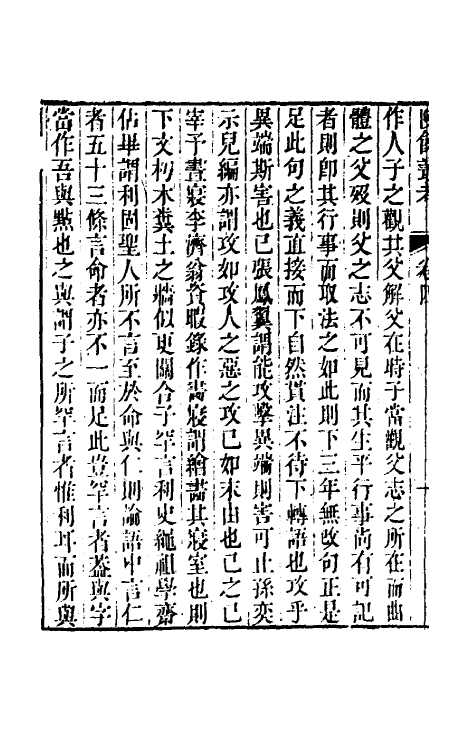 陔餘叢考 卷四 十
作人子之觀其父解父在時子當觀父志之所在而曲
體之父歿則父之志不可見而其生平行事尚有可記
者則卽其行事而取法之如此則下三年無改句正是
足此句之義直接而下自然貫注不待下轉語也攻乎
異端斯害也已張鳳翼謂能攻擊異端則害可止孫奕
示兒編亦謂攻如攻人之惡之攻已如末由也已之已
宰予晝寢李濟翁資暇錄作畫寢謂繪畫其寢室也則
下文朽木糞土之牆似更關合子罕言利史繩祖學齋
佔畢謂利固聖人所不言至於命與仁則論語中言仁
者五十三條言命者亦不一而足此豈罕言者蓋與字
當作吾與點也之與謂子之所罕言者惟利耳而所與